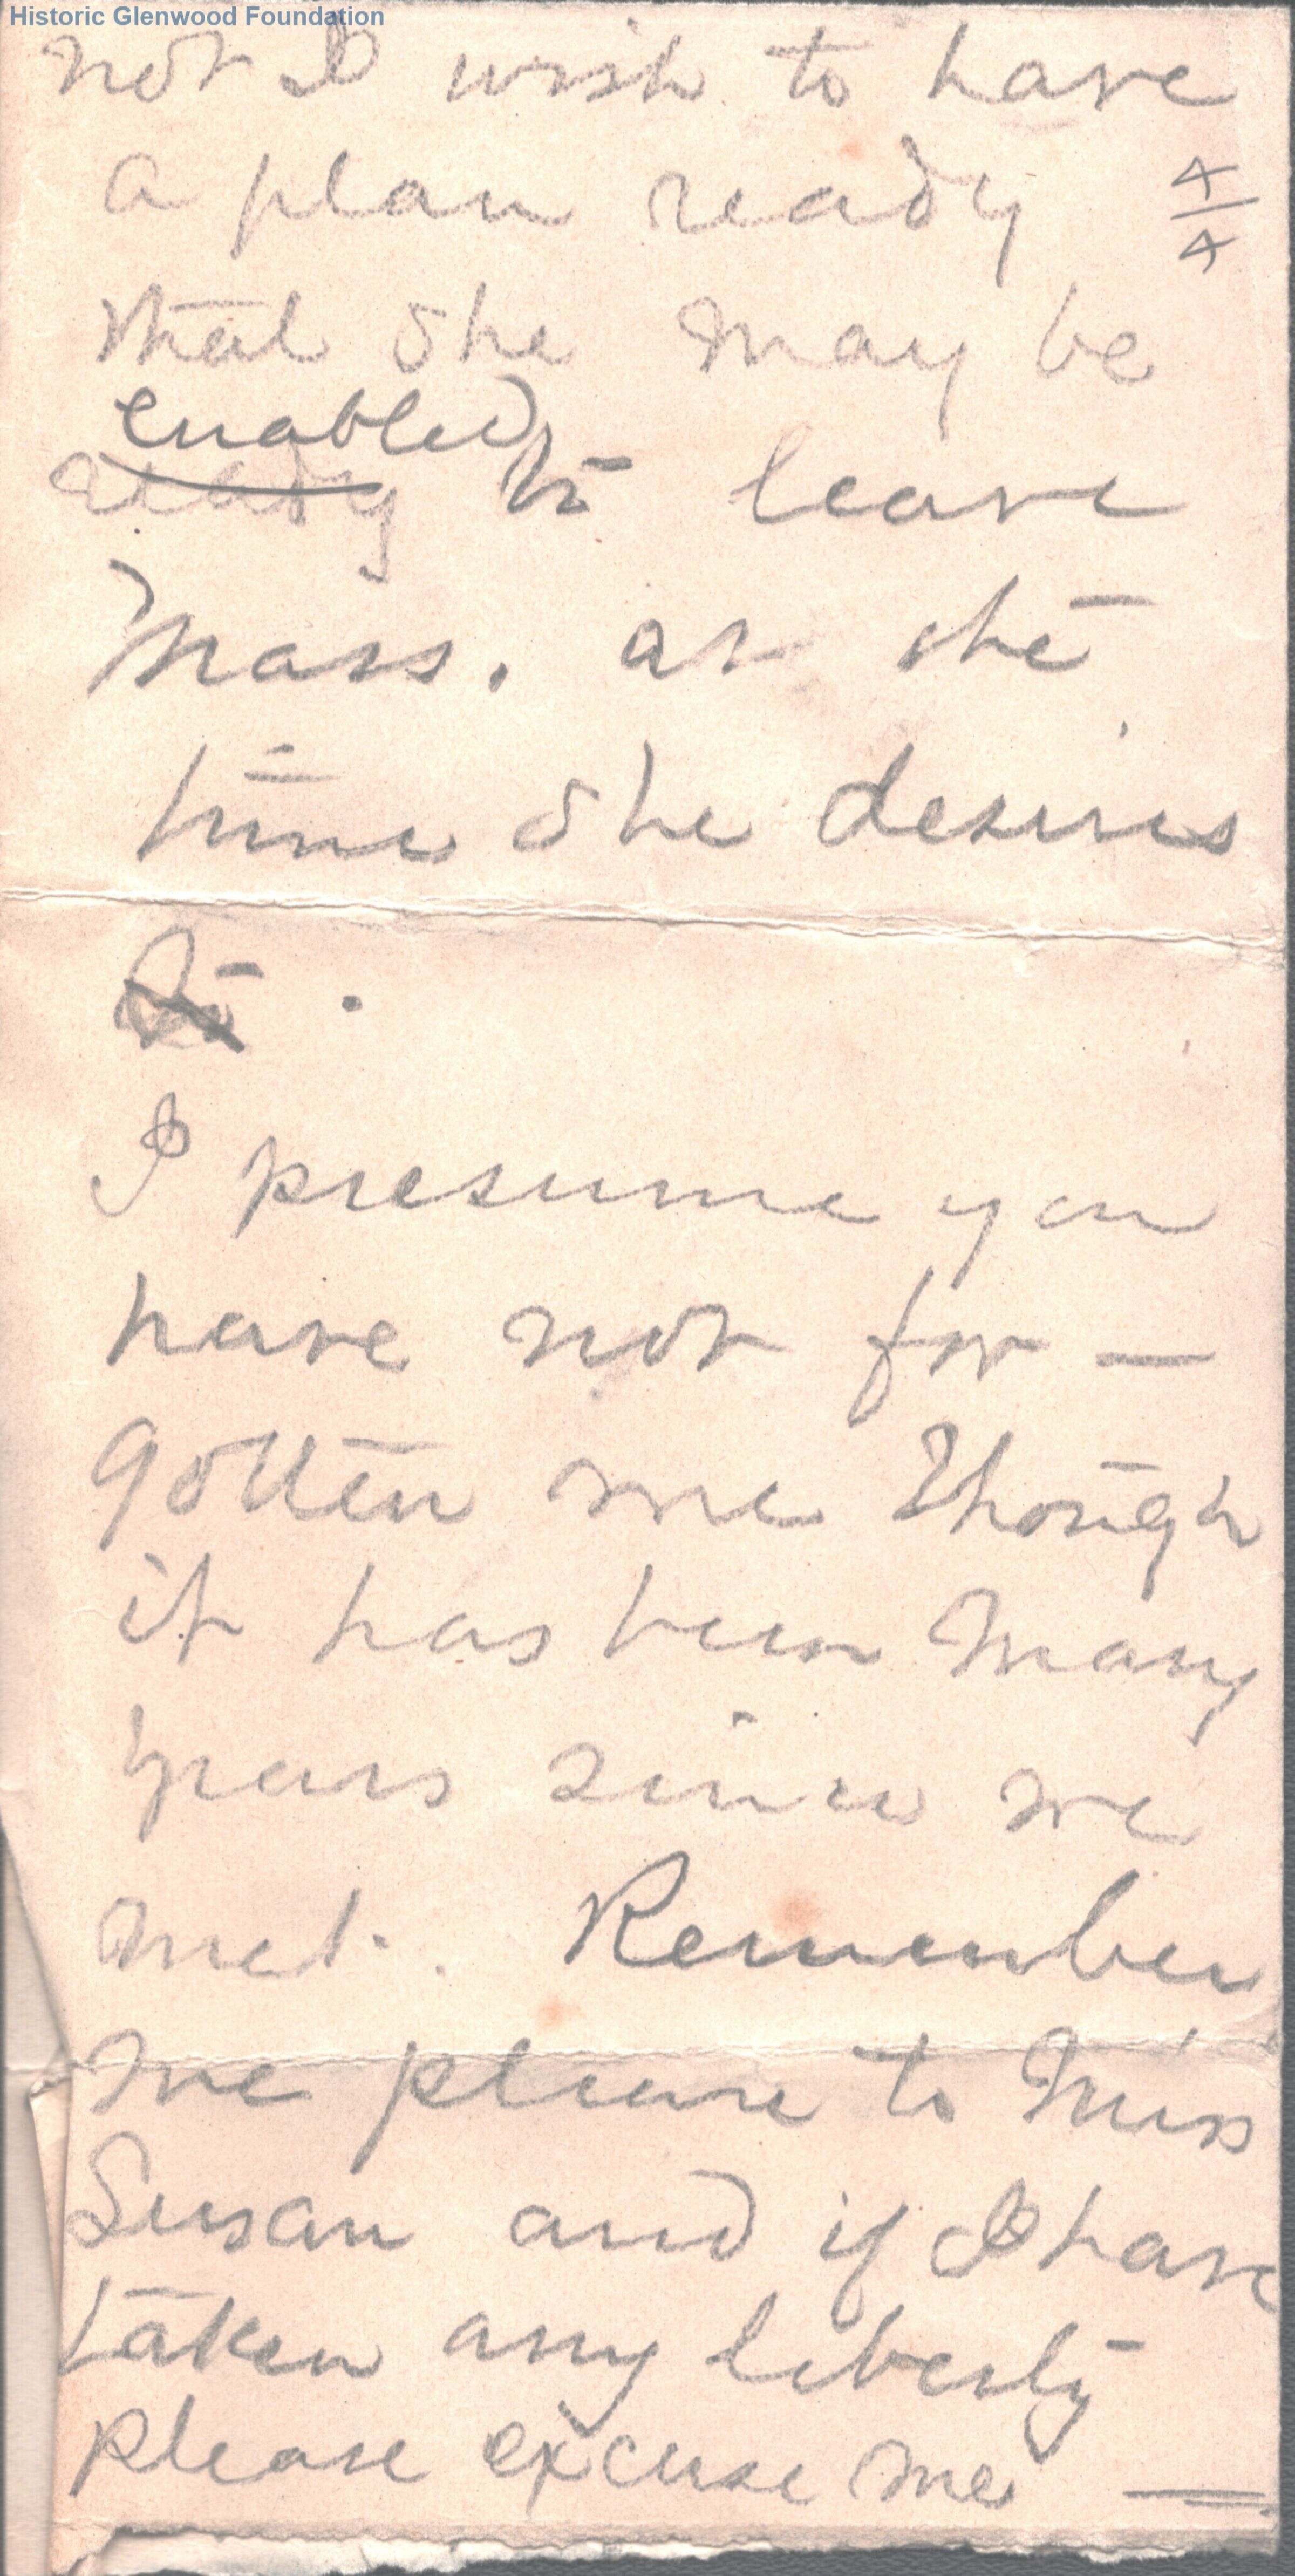 Historic Glenwood Foundation
not I wish to have
a plan ready
4/4
that she may be
enabled
ready to leave
Mass. at the
time she desires
to .
I presume you
have not for —
gotten me though
it has been many
years since we
met. Remember
me please to Miss
Susan and if I have
taken any liberty
please excuse me —